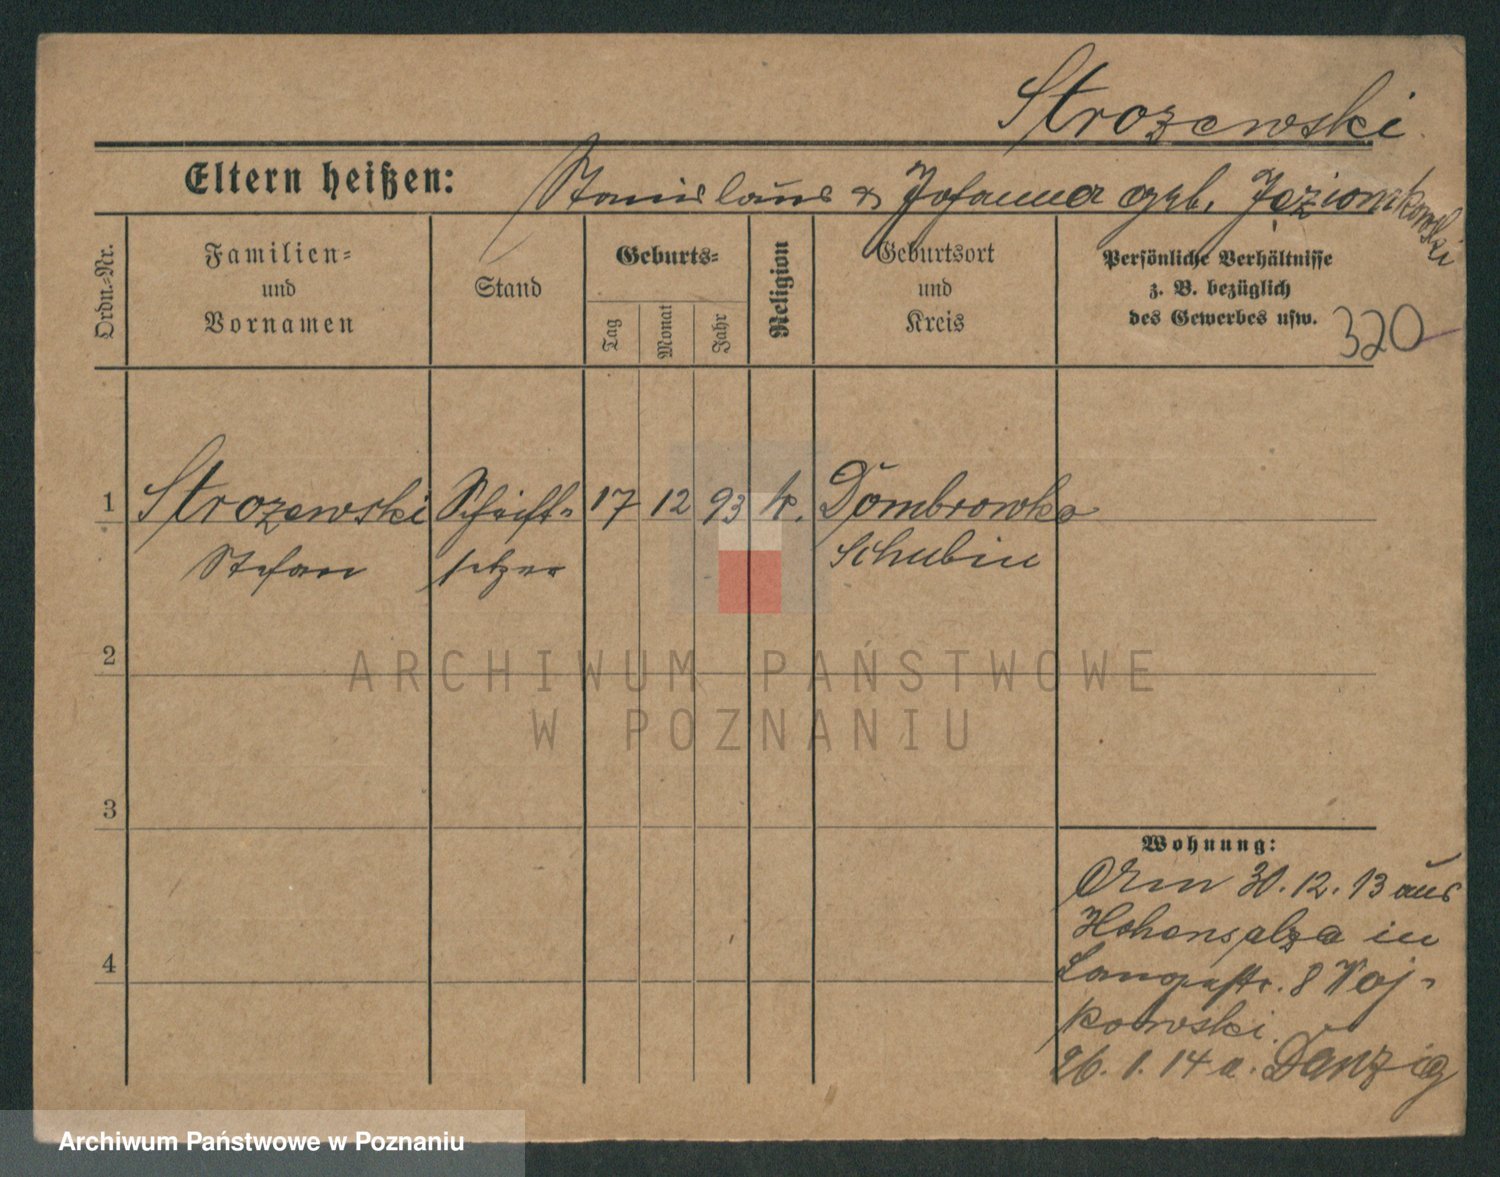 Strozewski
Eltern heißen: Stanislaus & Johanna geb. Jezionkowski
Ordn.-Nr.
Familien-
und
Vornamen
Stand
Geburts-
Tag
Monat
Jahr
Religion
Geburtsort
und
Kreis
Persönliche Verhältnisse
z. B. bezüglich
des Gewerbes usw.
320
1 Strozewski Schrift- 17 12 93 k. Dombrowka
Stefan setzer Schubin
2
3
4
Wohnung:
Am 30.12.13 aus
Hohensalza in
Langestr. 8 Woj-
kowski.
26.1.14 a. Danzig
ARCHIWUM PAŃSTWOWE
W POZNANIU
Archiwum Państwowe w Poznaniu